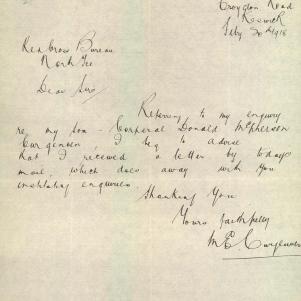 Croydon Road
Keswick
Feby 30th 1918
Red Cross Bureau
North Tce
Dear Sir/
Referring to my enquiry
re my son - Corporal Donald McPherson
Curgenven, I beg to advise
that I received a letter by todays
mail, which does away with you
instituting enquiries
Thanking You
Yours faithfully
M E Curgenven